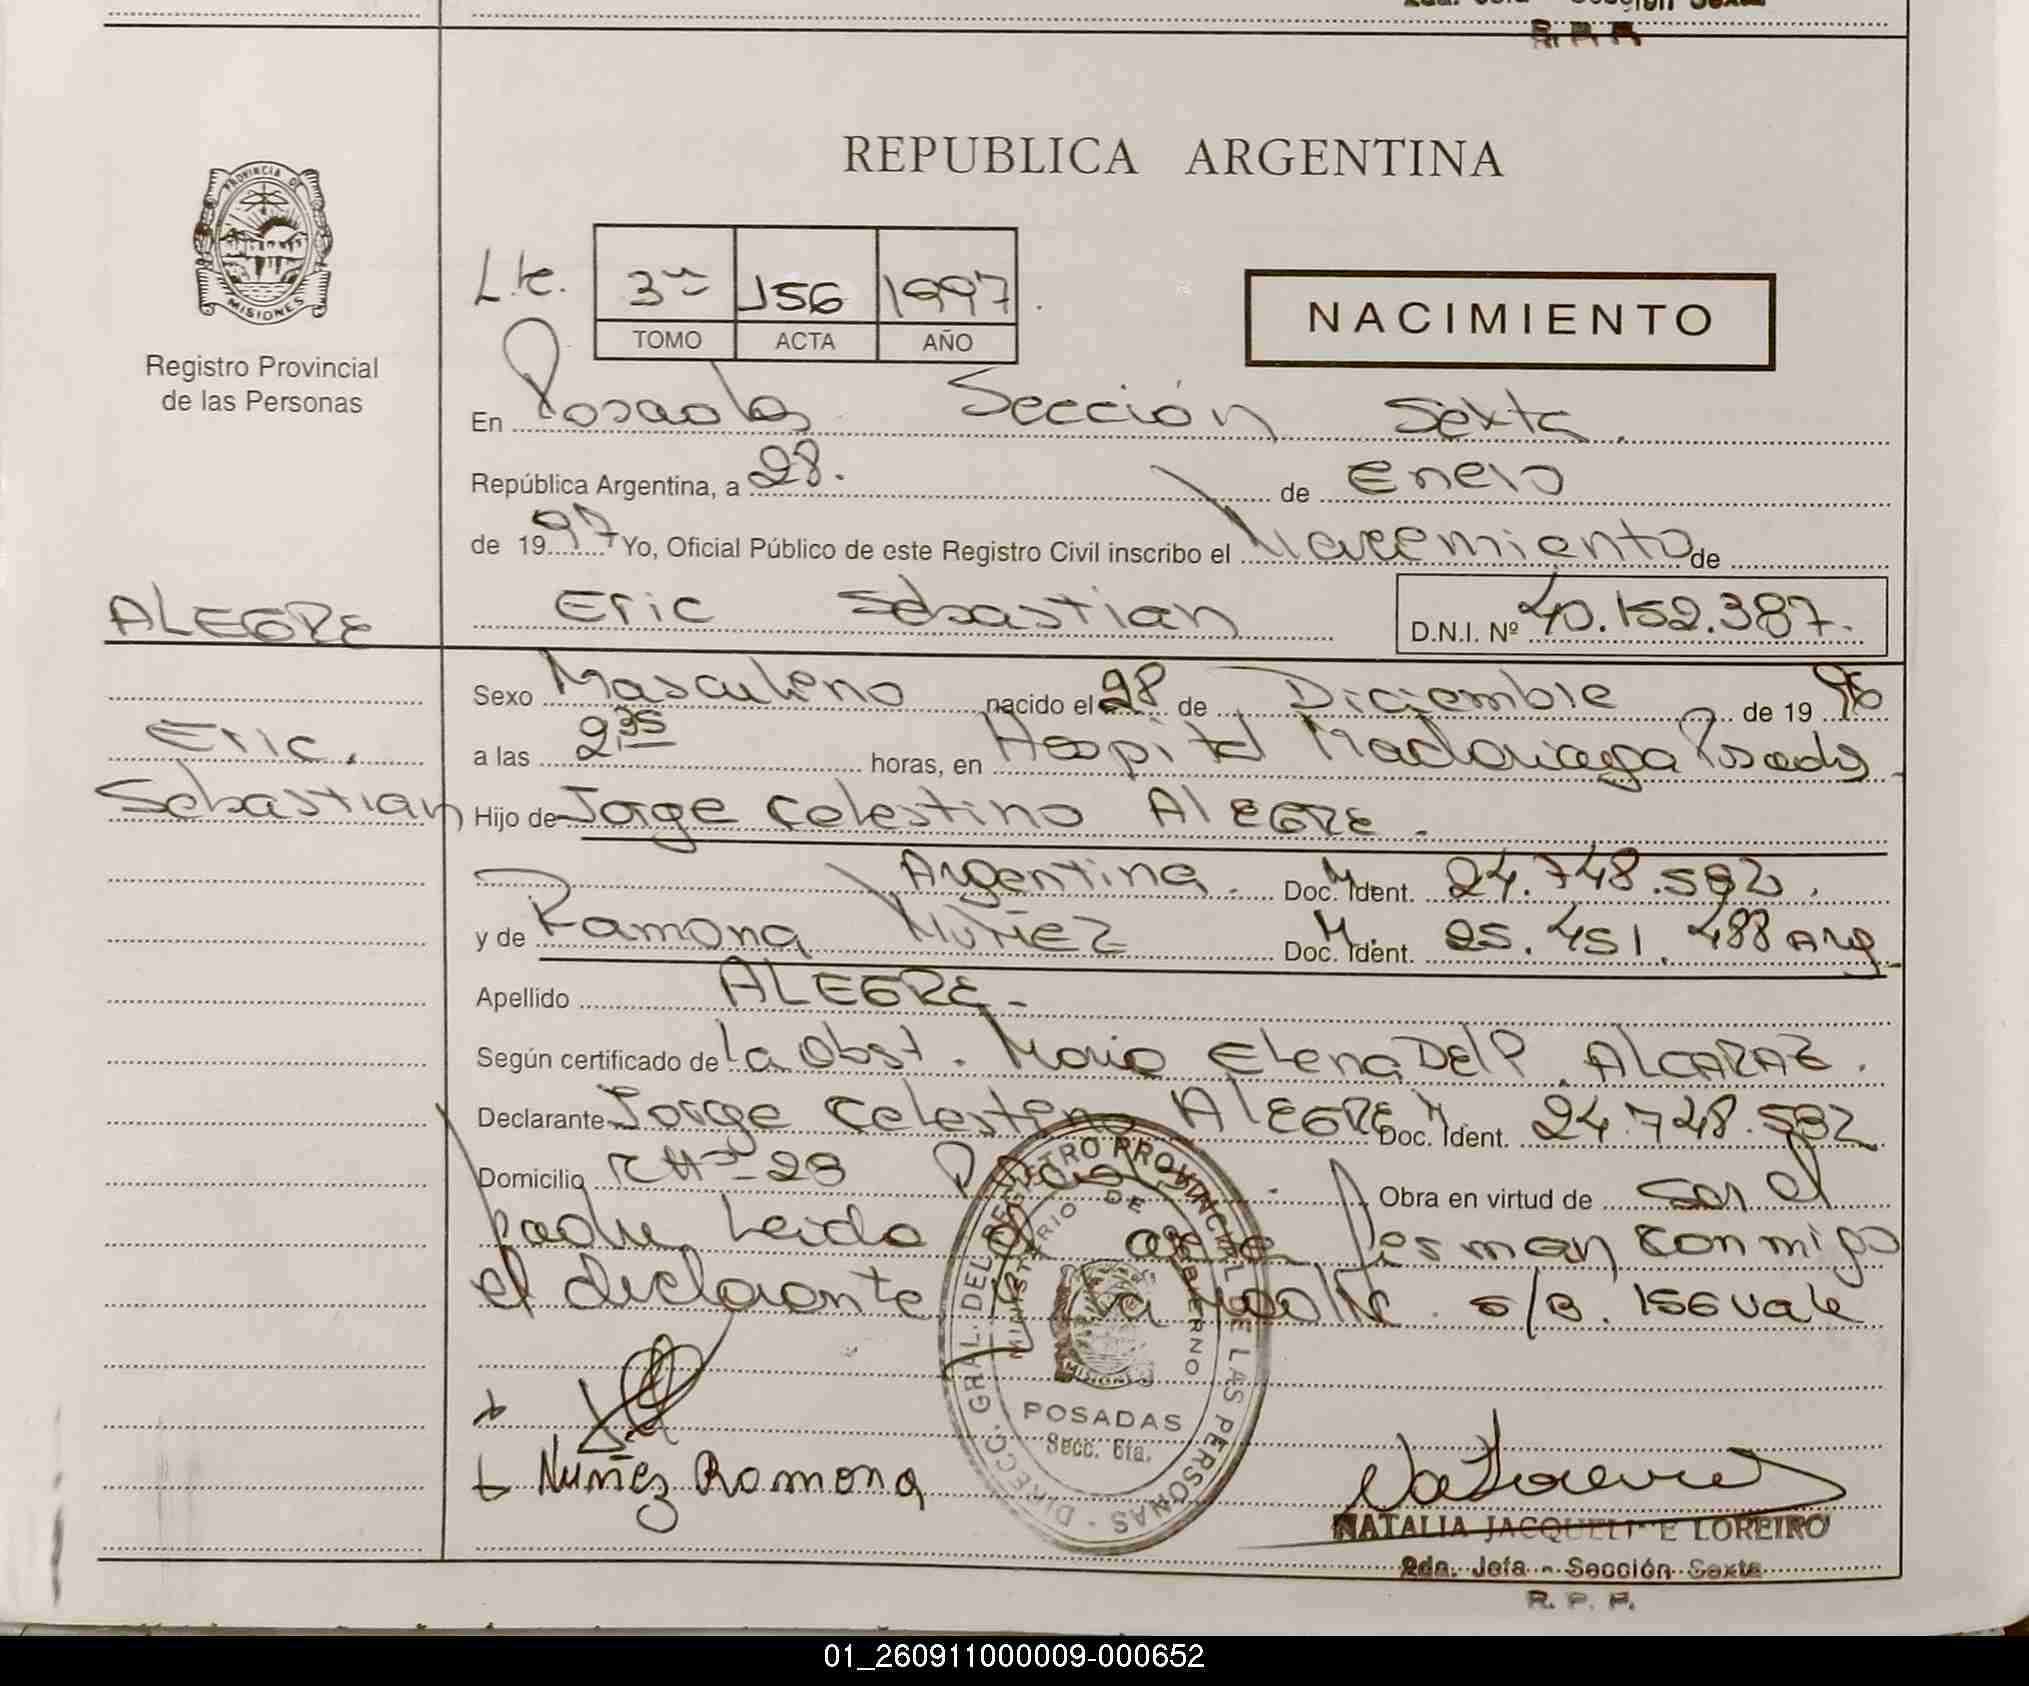 R. P. P.
REPUBLICA ARGENTINA
PROVINCIA DE
MISIONES
Registro Provincial
de las Personas
3 156 1997
TOMO ACTA AÑO
NACIMIENTO
En Posadas Sección Sexta
República Argentina, a 28. de Enero
de 1997 Yo, Oficial Público de este Registro Civil inscribo el Nacimiento de
ALEGRE
Eric Sebastian D.N.I. Nº 40.152.387.
Sexo Masculino nacido el 28 de Diciembre de 1996
Eric.
a las 2,35 horas, en Hospital Madariaga Posadas
Sebastian
Hijo de Jorge Celestino ALEGRE.
Argentina. Doc. Ident. 24.748.592.
y de Ramona Nuñez Doc. Ident. 25.451.488 Arg
Apellido ALEGRE-
Según certificado de la Obst. Maria Elena Del P. ALCARAZ.
Declarante Jorge Celestino ALEGRE Doc. Ident. 24.748.592
Domicilio 28 Obra en virtud de ser el
padre Leida el acta firman conmigo
el declarante y la madre. s/B. 156 vale
Nuñez Ramona
DIRECC. GRAL. DEL REGISTRO PROVINCIAL DE LAS PERSONAS
MINISTERIO DE GOBIERNO
MISIONES
POSADAS
Secc. 6ta.
NATALIA JACQUELINE LOREIRO
2da. Jefa - Sección Sexta
R. P. P.
01_260911000009-000652